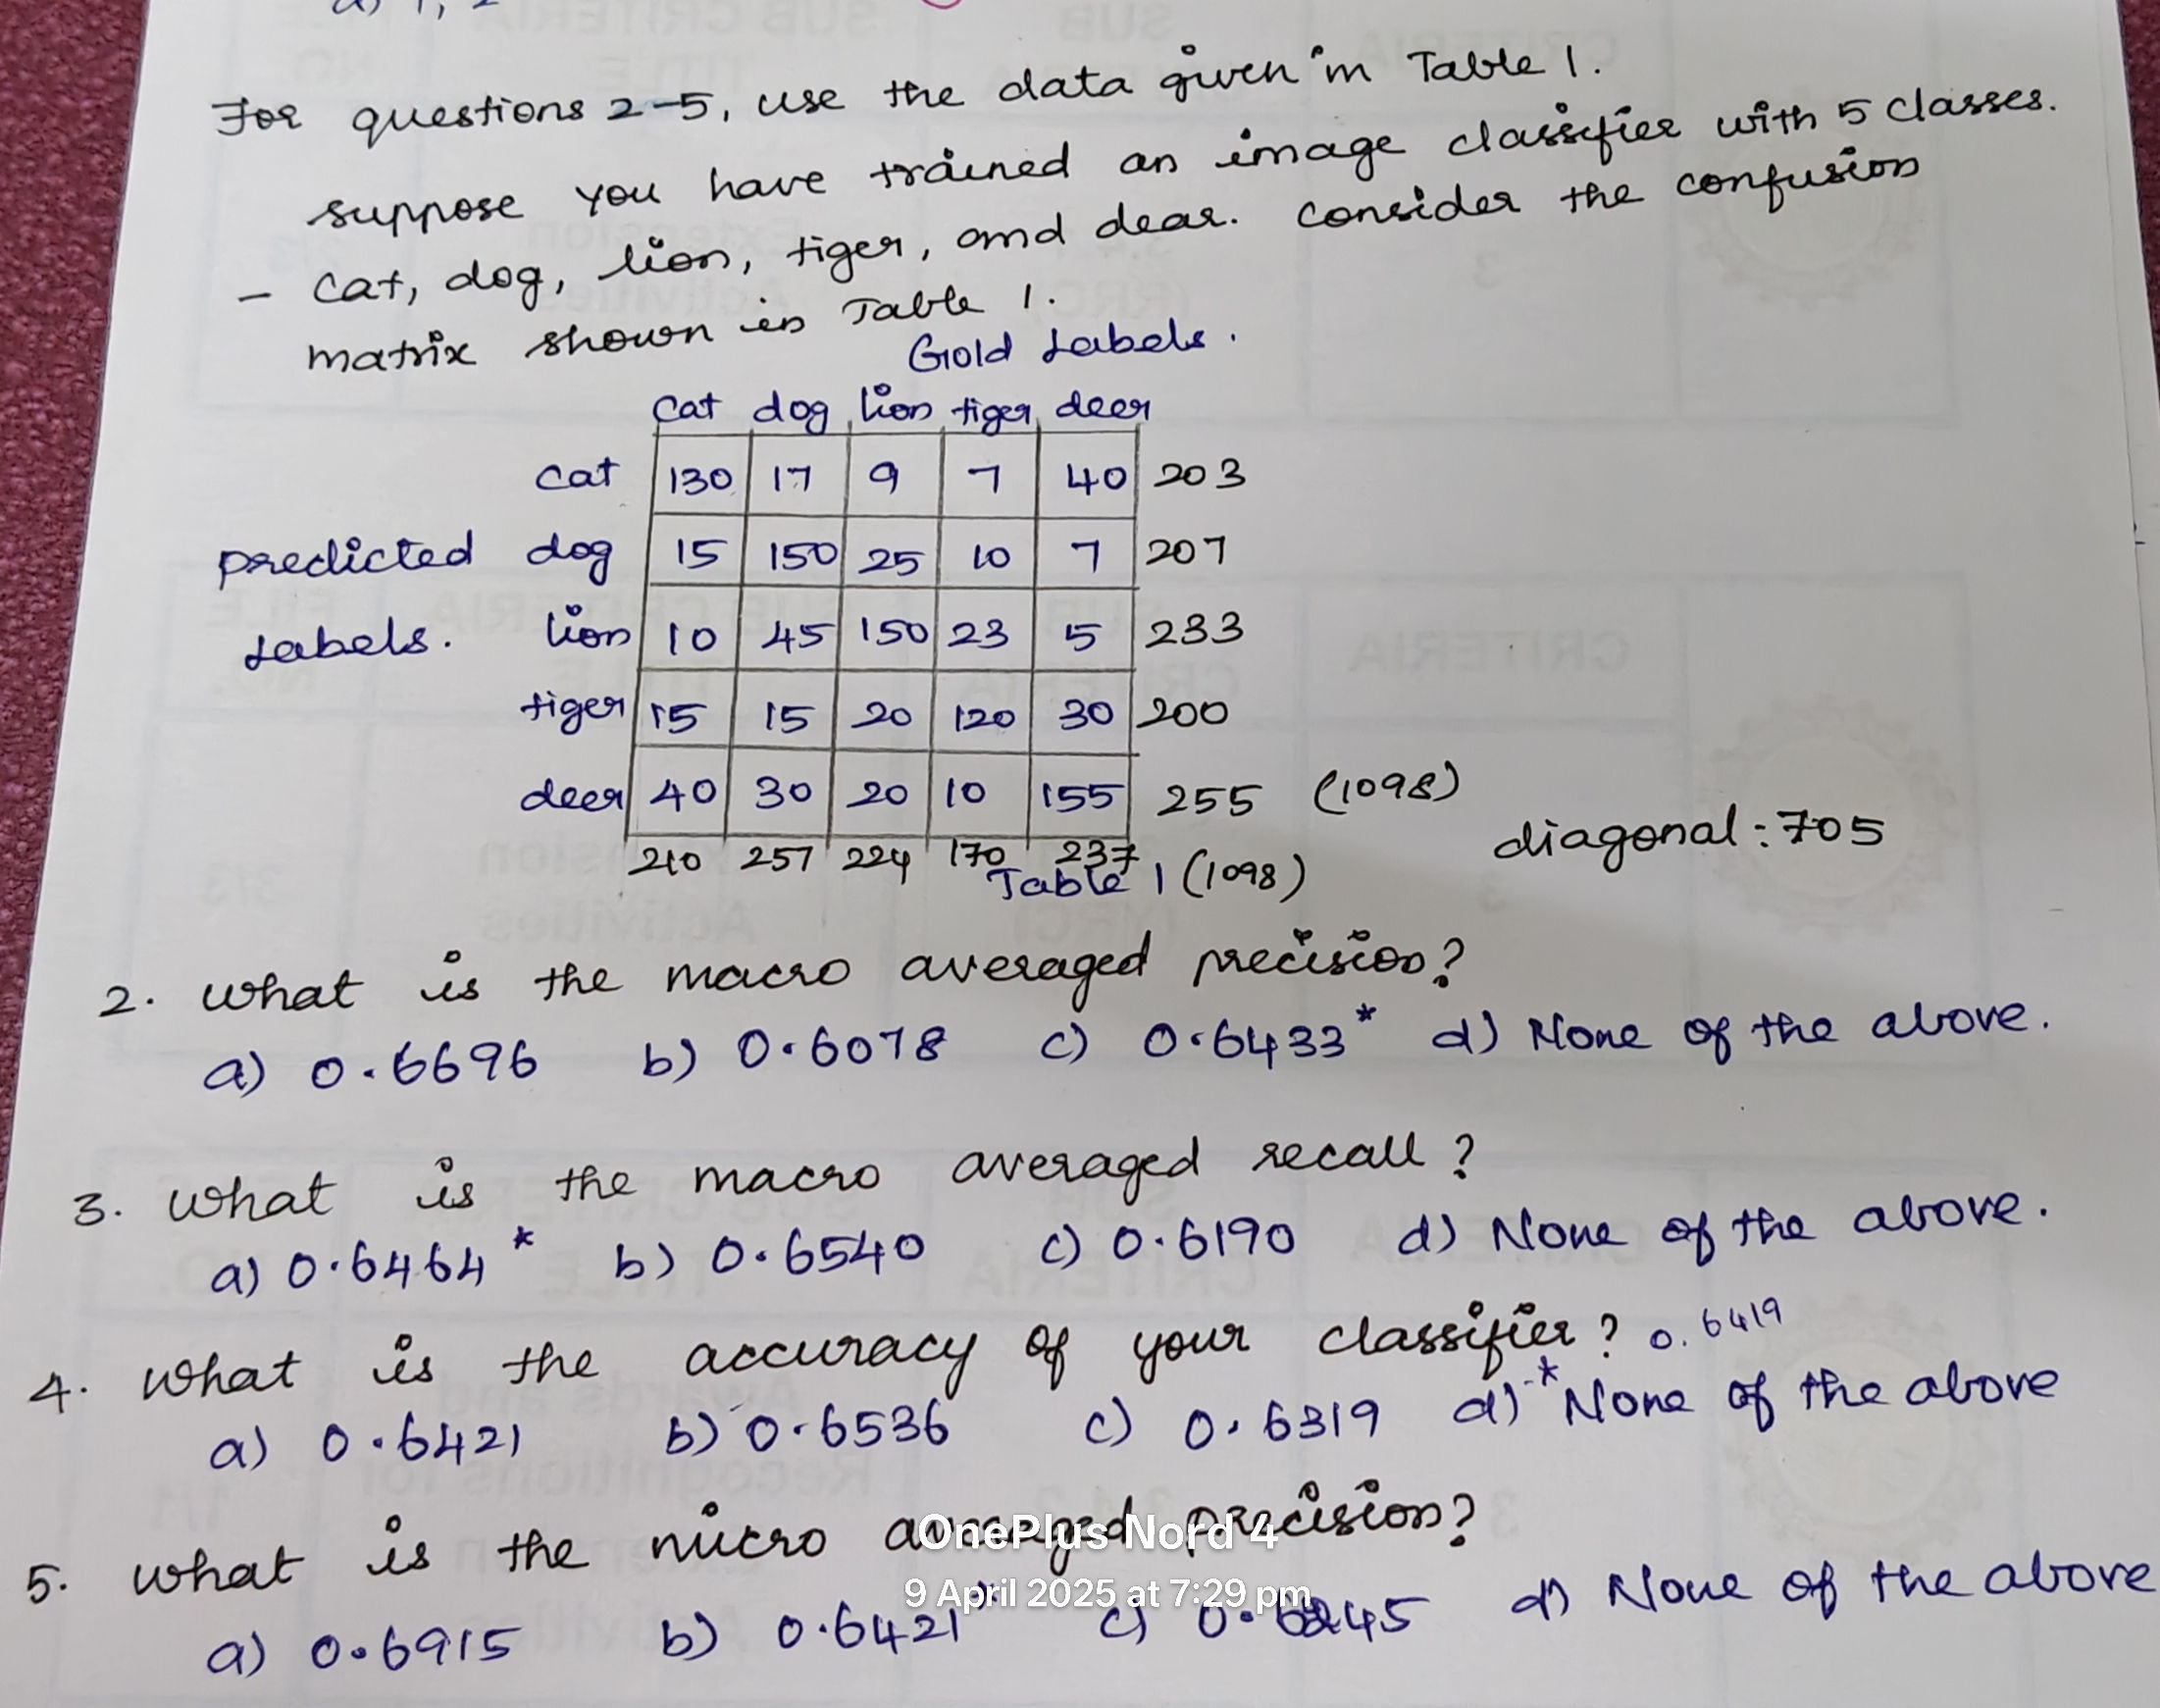 For questions 2-5, use the data given in Table 1.
suppose you have trained an image classifier with 5 classes.
- cat, dog, lion, tiger, and dear. consider the confusion
matrix shown in Table 1.
Gold Labels.
cat dog lion tiger deer
cat 130 17 9 7 40 203
predicted dog 15 150 25 10 7 207
Labels. lion 10 45 150 23 5 233
tiger 15 15 20 120 30 200
deer 40 30 20 10 155 255 (1098)
diagonal: 705
210 257 224 170 237
Table 1 (1098)
2. what is the macro averaged precision?
a) 0.6696 b) 0.6078 c) 0.6433* d) None of the above.
3. what is the macro averaged recall?
a) 0.6464* b) 0.6540 c) 0.6190 d) None of the above.
4. what is the accuracy of your classifier? 0.6419
a) 0.6421 b) 0.6536 c) 0.6319 d)* None of the above
5. what is the micro averaged precision?
OnePlus Nord 4
9 April 2025 at 7:29 pm
a) 0.6915 b) 0.6421* c) d) None of the above